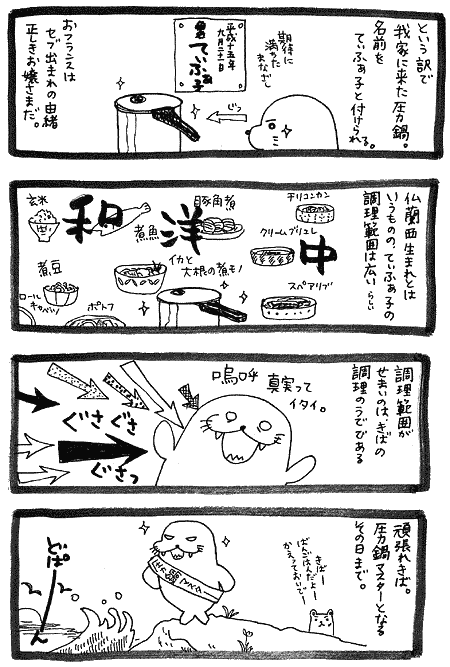 という訳で
我家に来た圧力鍋。
名前を
てぃふぁ子と付けられる。
期待に
満ちた
まなざし
じっ
平成十五年
九月二十一日
命名 てぃふぁ子
おフランスは
セブ出まれの由緒
正しきお嬢さまだ。
仏蘭西生まれとは
いうものの、てぃふぁ子の
調理範囲は広い らしい
チリコンカン
クリームブリュレ
中
スペアリブ
豚角煮
洋
イカと
大根の煮モノ
煮魚
和
玄米
煮豆
ロール
キャベツ
ポトフ
調理範囲が
せまいのは、きばの
調理のうでである
嗚呼
真実って
イタイ。
ぐさ
ぐさ
ぐさっ
頑張れきば。
圧力鍋マスターとなる
その日まで。
きばー
ばんごはんだよー
かえっておいでー
どぱーん